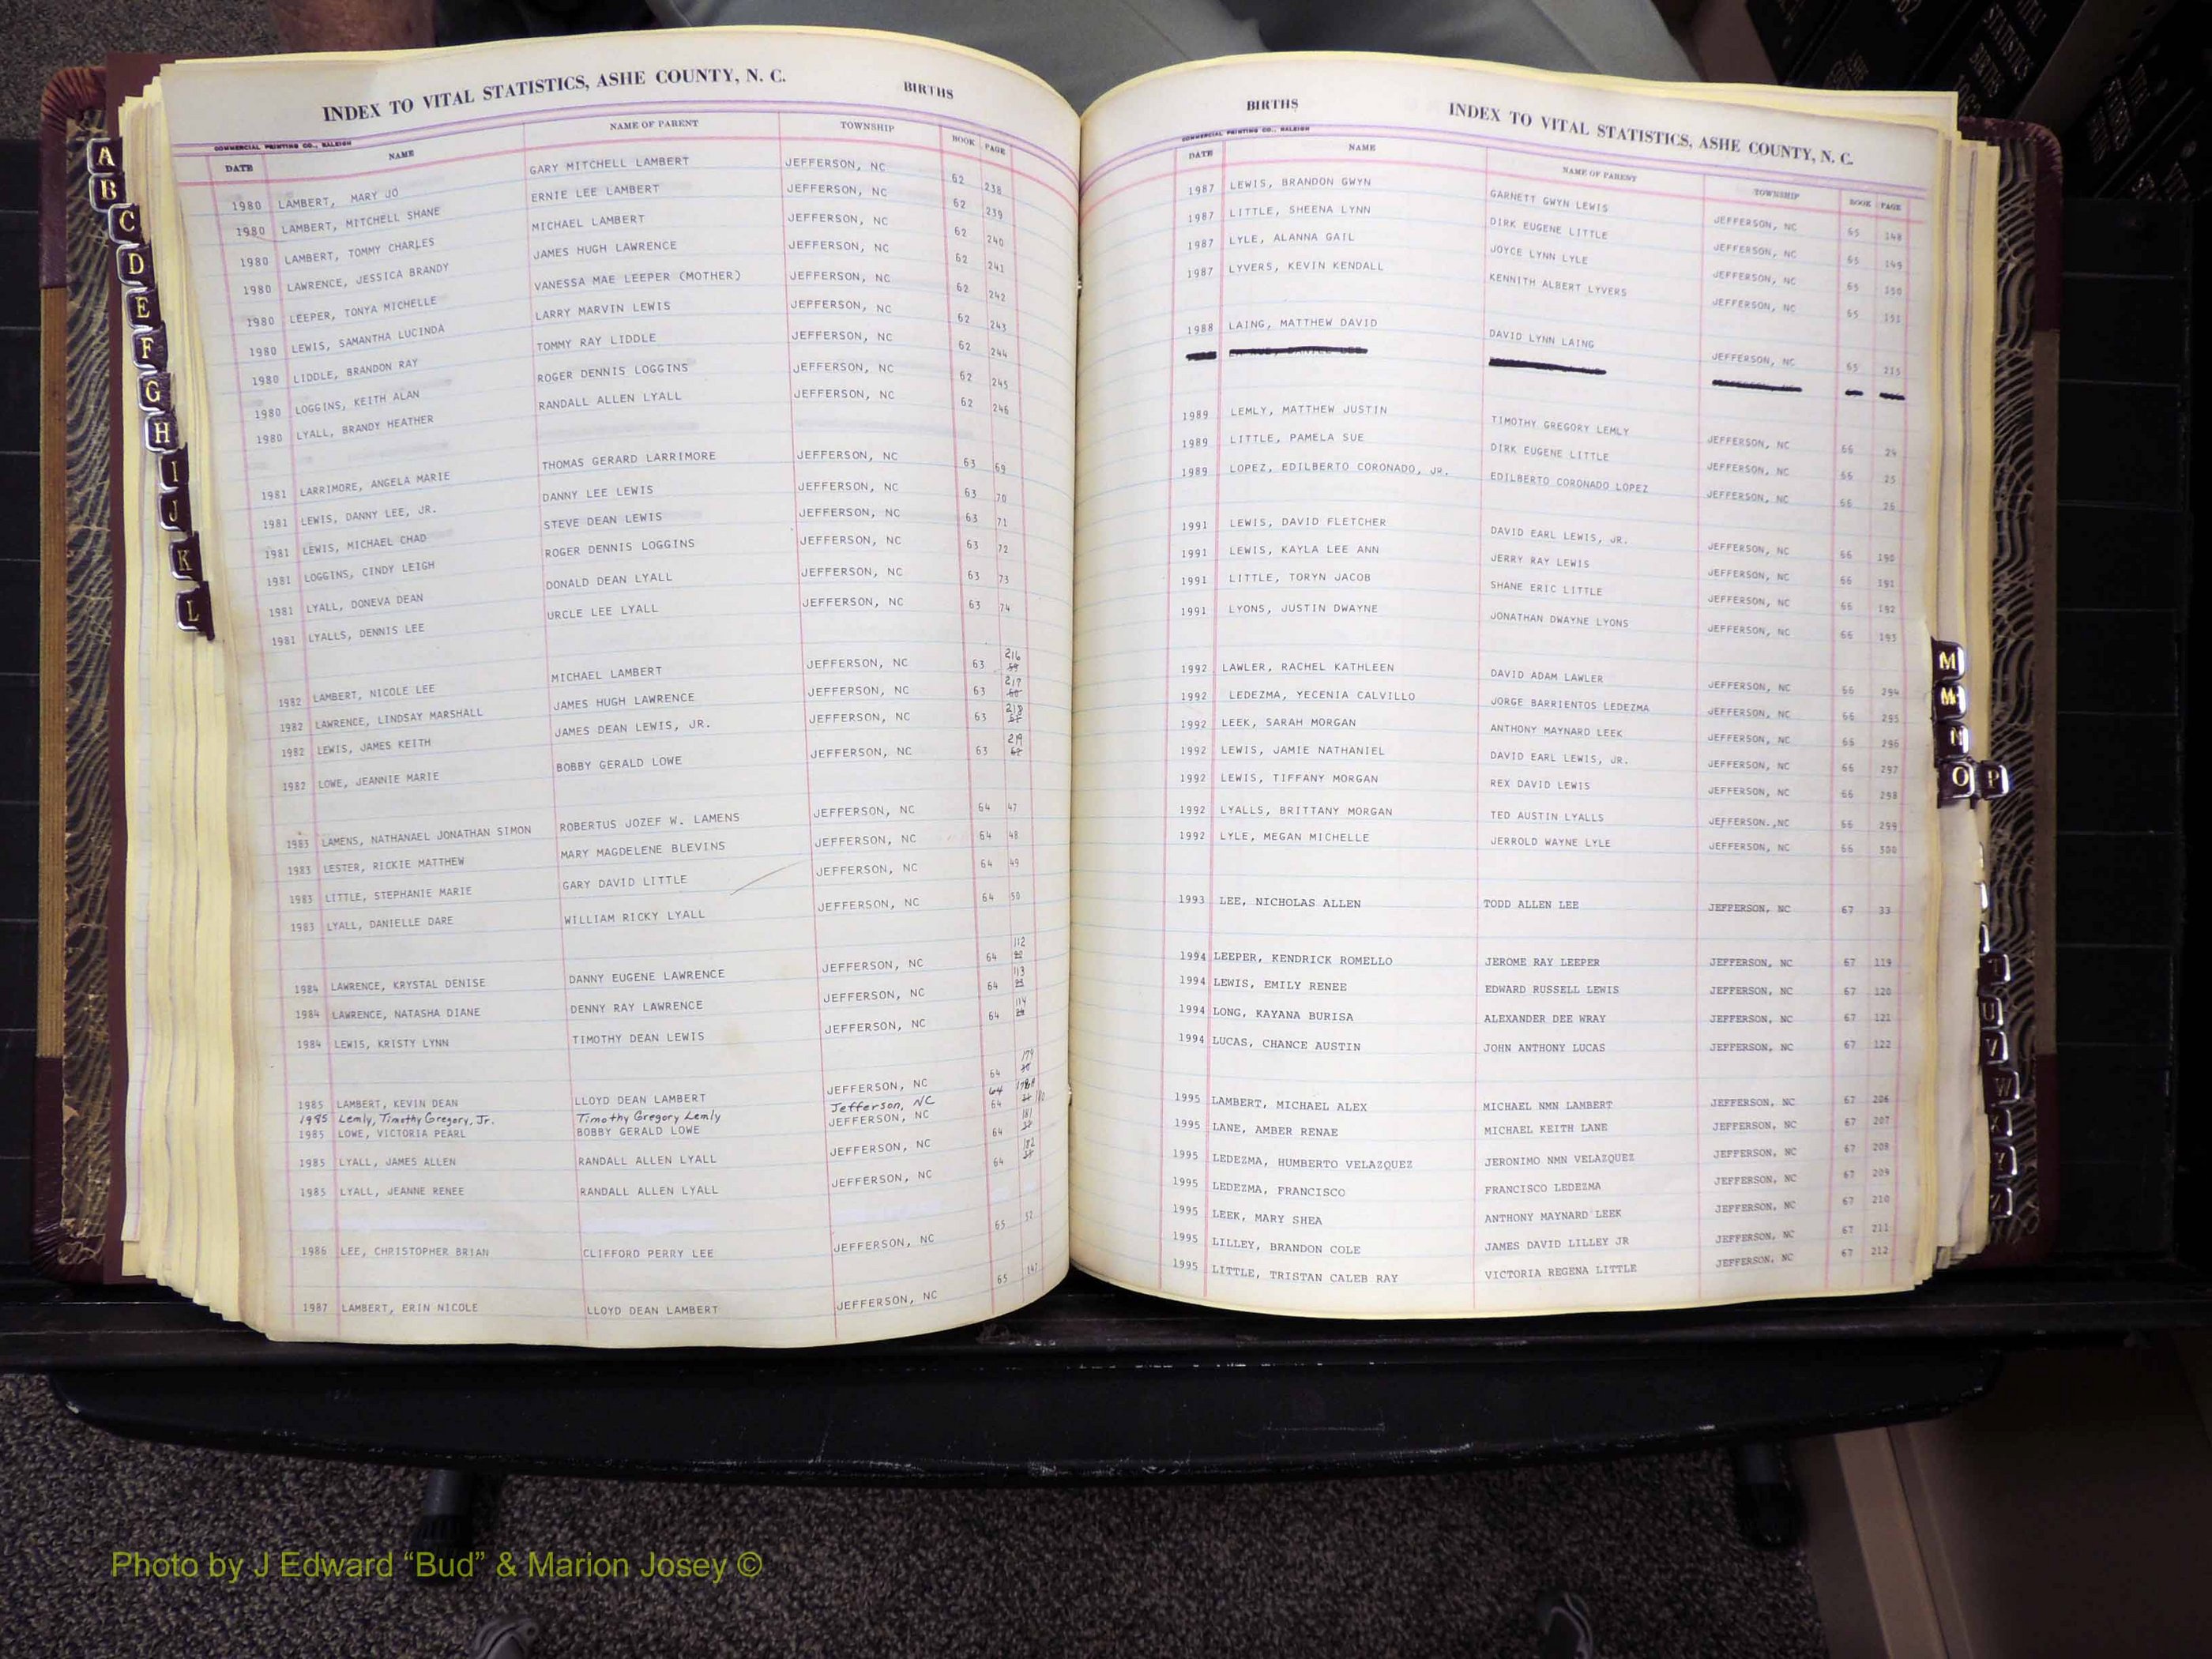 INDEX TO VITAL STATISTICS, ASHE COUNTY, N. C. BIRTHS
COMMERCIAL PRINTING CO., RALEIGH
DATE NAME NAME OF PARENT TOWNSHIP BOOK PAGE
1980 LAMBERT, MARY JO GARY MITCHELL LAMBERT JEFFERSON, NC 62 238
1980 LAMBERT, MITCHELL SHANE ERNIE LEE LAMBERT JEFFERSON, NC 62 239
1980 LAMBERT, TOMMY CHARLES MICHAEL LAMBERT JEFFERSON, NC 62 240
1980 LAWRENCE, JESSICA BRANDY JAMES HUGH LAWRENCE JEFFERSON, NC 62 241
1980 LEEPER, TONYA MICHELLE VANESSA MAE LEEPER (MOTHER) JEFFERSON, NC 62 242
1980 LEWIS, SAMANTHA LUCINDA LARRY MARVIN LEWIS JEFFERSON, NC 62 243
1980 LIDDLE, BRANDON RAY TOMMY RAY LIDDLE JEFFERSON, NC 62 244
1980 LOGGINS, KEITH ALAN ROGER DENNIS LOGGINS JEFFERSON, NC 62 245
1980 LYALL, BRANDY HEATHER RANDALL ALLEN LYALL JEFFERSON, NC 62 246
1981 LARRIMORE, ANGELA MARIE THOMAS GERARD LARRIMORE JEFFERSON, NC 63 69
1981 LEWIS, DANNY LEE, JR. DANNY LEE LEWIS JEFFERSON, NC 63 70
1981 LEWIS, MICHAEL CHAD STEVE DEAN LEWIS JEFFERSON, NC 63 71
1981 LOGGINS, CINDY LEIGH ROGER DENNIS LOGGINS JEFFERSON, NC 63 72
1981 LYALL, DONEVA DEAN DONALD DEAN LYALL JEFFERSON, NC 63 73
1981 LYALLS, DENNIS LEE URCLE LEE LYALL JEFFERSON, NC 63 74
1982 LAMBERT, NICOLE LEE MICHAEL LAMBERT JEFFERSON, NC 63 216
1982 LAWRENCE, LINDSAY MARSHALL JAMES HUGH LAWRENCE JEFFERSON, NC 63 217
1982 LEWIS, JAMES KEITH JAMES DEAN LEWIS, JR. JEFFERSON, NC 63 218
1982 LOWE, JEANNIE MARIE BOBBY GERALD LOWE JEFFERSON, NC 63 219
1983 LAMENS, NATHANAEL JONATHAN SIMON ROBERTUS JOZEF W. LAMENS JEFFERSON, NC 64 47
1983 LESTER, RICKIE MATTHEW MARY MAGDELENE BLEVINS JEFFERSON, NC 64 48
1983 LITTLE, STEPHANIE MARIE GARY DAVID LITTLE JEFFERSON, NC 64 49
1983 LYALL, DANIELLE DARE WILLIAM RICKY LYALL JEFFERSON, NC 64 50
1984 LAWRENCE, KRYSTAL DENISE DANNY EUGENE LAWRENCE JEFFERSON, NC 64 112
1984 LAWRENCE, NATASHA DIANE DENNY RAY LAWRENCE JEFFERSON, NC 64 113
1984 LEWIS, KRISTY LYNN TIMOTHY DEAN LEWIS JEFFERSON, NC 64 114
1985 LAMBERT, KEVIN DEAN LLOYD DEAN LAMBERT JEFFERSON, NC 64 179
1985 Lemly, Timothy Gregory, Jr. Timothy Gregory Lemly Jefferson, NC 64
1985 LOWE, VICTORIA PEARL BOBBY GERALD LOWE JEFFERSON, NC 64 180
1985 LYALL, JAMES ALLEN RANDALL ALLEN LYALL JEFFERSON, NC 64 181
1985 LYALL, JEANNE RENEE RANDALL ALLEN LYALL JEFFERSON, NC 64 182
1986 LEE, CHRISTOPHER BRIAN CLIFFORD PERRY LEE JEFFERSON, NC 65 52
1987 LAMBERT, ERIN NICOLE LLOYD DEAN LAMBERT JEFFERSON, NC 65 147
BIRTHS INDEX TO VITAL STATISTICS, ASHE COUNTY, N. C.
COMMERCIAL PRINTING CO., RALEIGH
DATE NAME NAME OF PARENT TOWNSHIP BOOK PAGE
1987 LEWIS, BRANDON GWYN GARNETT GWYN LEWIS JEFFERSON, NC 65 148
1987 LITTLE, SHEENA LYNN DIRK EUGENE LITTLE JEFFERSON, NC 65 149
1987 LYLE, ALANNA GAIL JOYCE LYNN LYLE JEFFERSON, NC 65 150
1987 LYVERS, KEVIN KENDALL KENNITH ALBERT LYVERS JEFFERSON, NC 65 151
1988 LAING, MATTHEW DAVID DAVID LYNN LAING JEFFERSON, NC 65 215
1989 LEMLY, MATTHEW JUSTIN TIMOTHY GREGORY LEMLY JEFFERSON, NC 66 24
1989 LITTLE, PAMELA SUE DIRK EUGENE LITTLE JEFFERSON, NC 66 25
1989 LOPEZ, EDILBERTO CORONADO, JR. EDILBERTO CORONADO LOPEZ JEFFERSON, NC 66 26
1991 LEWIS, DAVID FLETCHER DAVID EARL LEWIS, JR. JEFFERSON, NC 66 190
1991 LEWIS, KAYLA LEE ANN JERRY RAY LEWIS JEFFERSON, NC 66 191
1991 LITTLE, TORYN JACOB SHANE ERIC LITTLE JEFFERSON, NC 66 192
1991 LYONS, JUSTIN DWAYNE JONATHAN DWAYNE LYONS JEFFERSON, NC 66 193
1992 LAWLER, RACHEL KATHLEEN DAVID ADAM LAWLER JEFFERSON, NC 66 294
1992 LEDEZMA, YECENIA CALVILLO JORGE BARRIENTOS LEDEZMA JEFFERSON, NC 66 295
1992 LEEK, SARAH MORGAN ANTHONY MAYNARD LEEK JEFFERSON, NC 66 296
1992 LEWIS, JAMIE NATHANIEL DAVID EARL LEWIS, JR. JEFFERSON, NC 66 297
1992 LEWIS, TIFFANY MORGAN REX DAVID LEWIS JEFFERSON, NC 66 298
1992 LYALLS, BRITTANY MORGAN TED AUSTIN LYALLS JEFFERSON.,NC 66 299
1992 LYLE, MEGAN MICHELLE JERROLD WAYNE LYLE JEFFERSON, NC 66 300
1993 LEE, NICHOLAS ALLEN TODD ALLEN LEE JEFFERSON, NC 67 33
1994 LEEPER, KENDRICK ROMELLO JEROME RAY LEEPER JEFFERSON, NC 67 119
1994 LEWIS, EMILY RENEE EDWARD RUSSELL LEWIS JEFFERSON, NC 67 120
1994 LONG, KAYANA BURISA ALEXANDER DEE WRAY JEFFERSON, NC 67 121
1994 LUCAS, CHANCE AUSTIN JOHN ANTHONY LUCAS JEFFERSON, NC 67 122
1995 LAMBERT, MICHAEL ALEX MICHAEL NMN LAMBERT JEFFERSON, NC 67 206
1995 LANE, AMBER RENAE MICHAEL KEITH LANE JEFFERSON, NC 67 207
1995 LEDEZMA, HUMBERTO VELAZQUEZ JERONIMO NMN VELAZQUEZ JEFFERSON, NC 67 208
1995 LEDEZMA, FRANCISCO FRANCISCO LEDEZMA JEFFERSON, NC 67 209
1995 LEEK, MARY SHEA ANTHONY MAYNARD LEEK JEFFERSON, NC 67 210
1995 LILLEY, BRANDON COLE JAMES DAVID LILLEY JR JEFFERSON, NC 67 211
1995 LITTLE, TRISTAN CALEB RAY VICTORIA REGENA LITTLE JEFFERSON, NC 67 212
A
B
C
D
E
F
G
H
I
J
K
L
M
Mc
N
O P
T
U
V
W
X
Y
Z
VITAL STATISTICS BIRTHS
Photo by J Edward “Bud” & Marion Josey ©